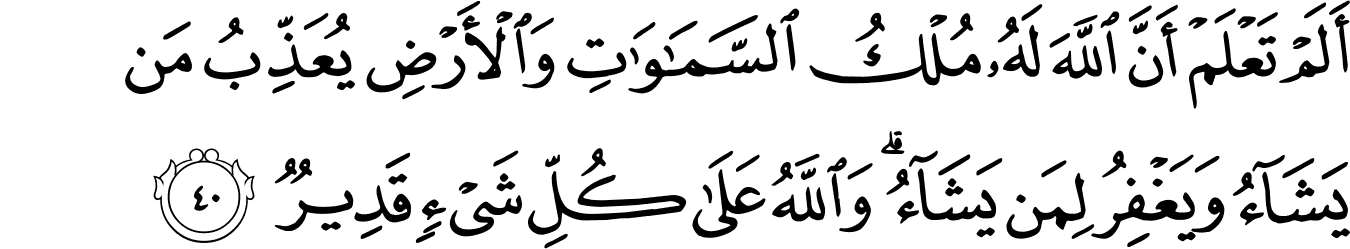 أَلَمْ تَعْلَمْ أَنَّ ٱللَّهَ لَهُۥ مُلْكُ ٱلسَّمَـٰوَٰتِ وَٱلْأَرْضِ يُعَذِّبُ مَن
يَشَآءُ وَيَغْفِرُ لِمَن يَشَآءُ ۗ وَٱللَّهُ عَلَىٰ كُلِّ شَىْءٍ قَدِيرٌ ٤٠